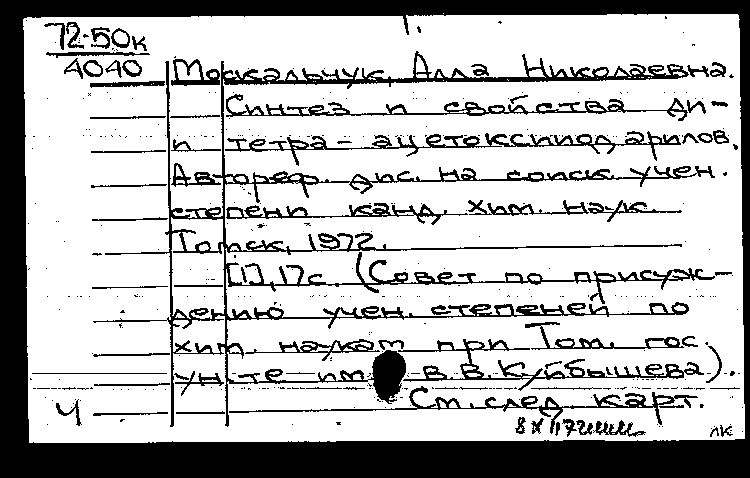 1.
72-50к
4040 Москальчук, Алла Николаевна.
Синтез и свойства ди-
и тетра- ацетоксииод арилов.
Автореф. дис. на соиск. учен.
степени канд. хим. наук.
Томск, 1972.
[1], 17с. (Совет по присуж-
дению учен. степеней по
хим. наукам при Том. гос.
ун-те им. В.В. Куйбышева).
Ч См. след. карт.
8 X 1172
лк